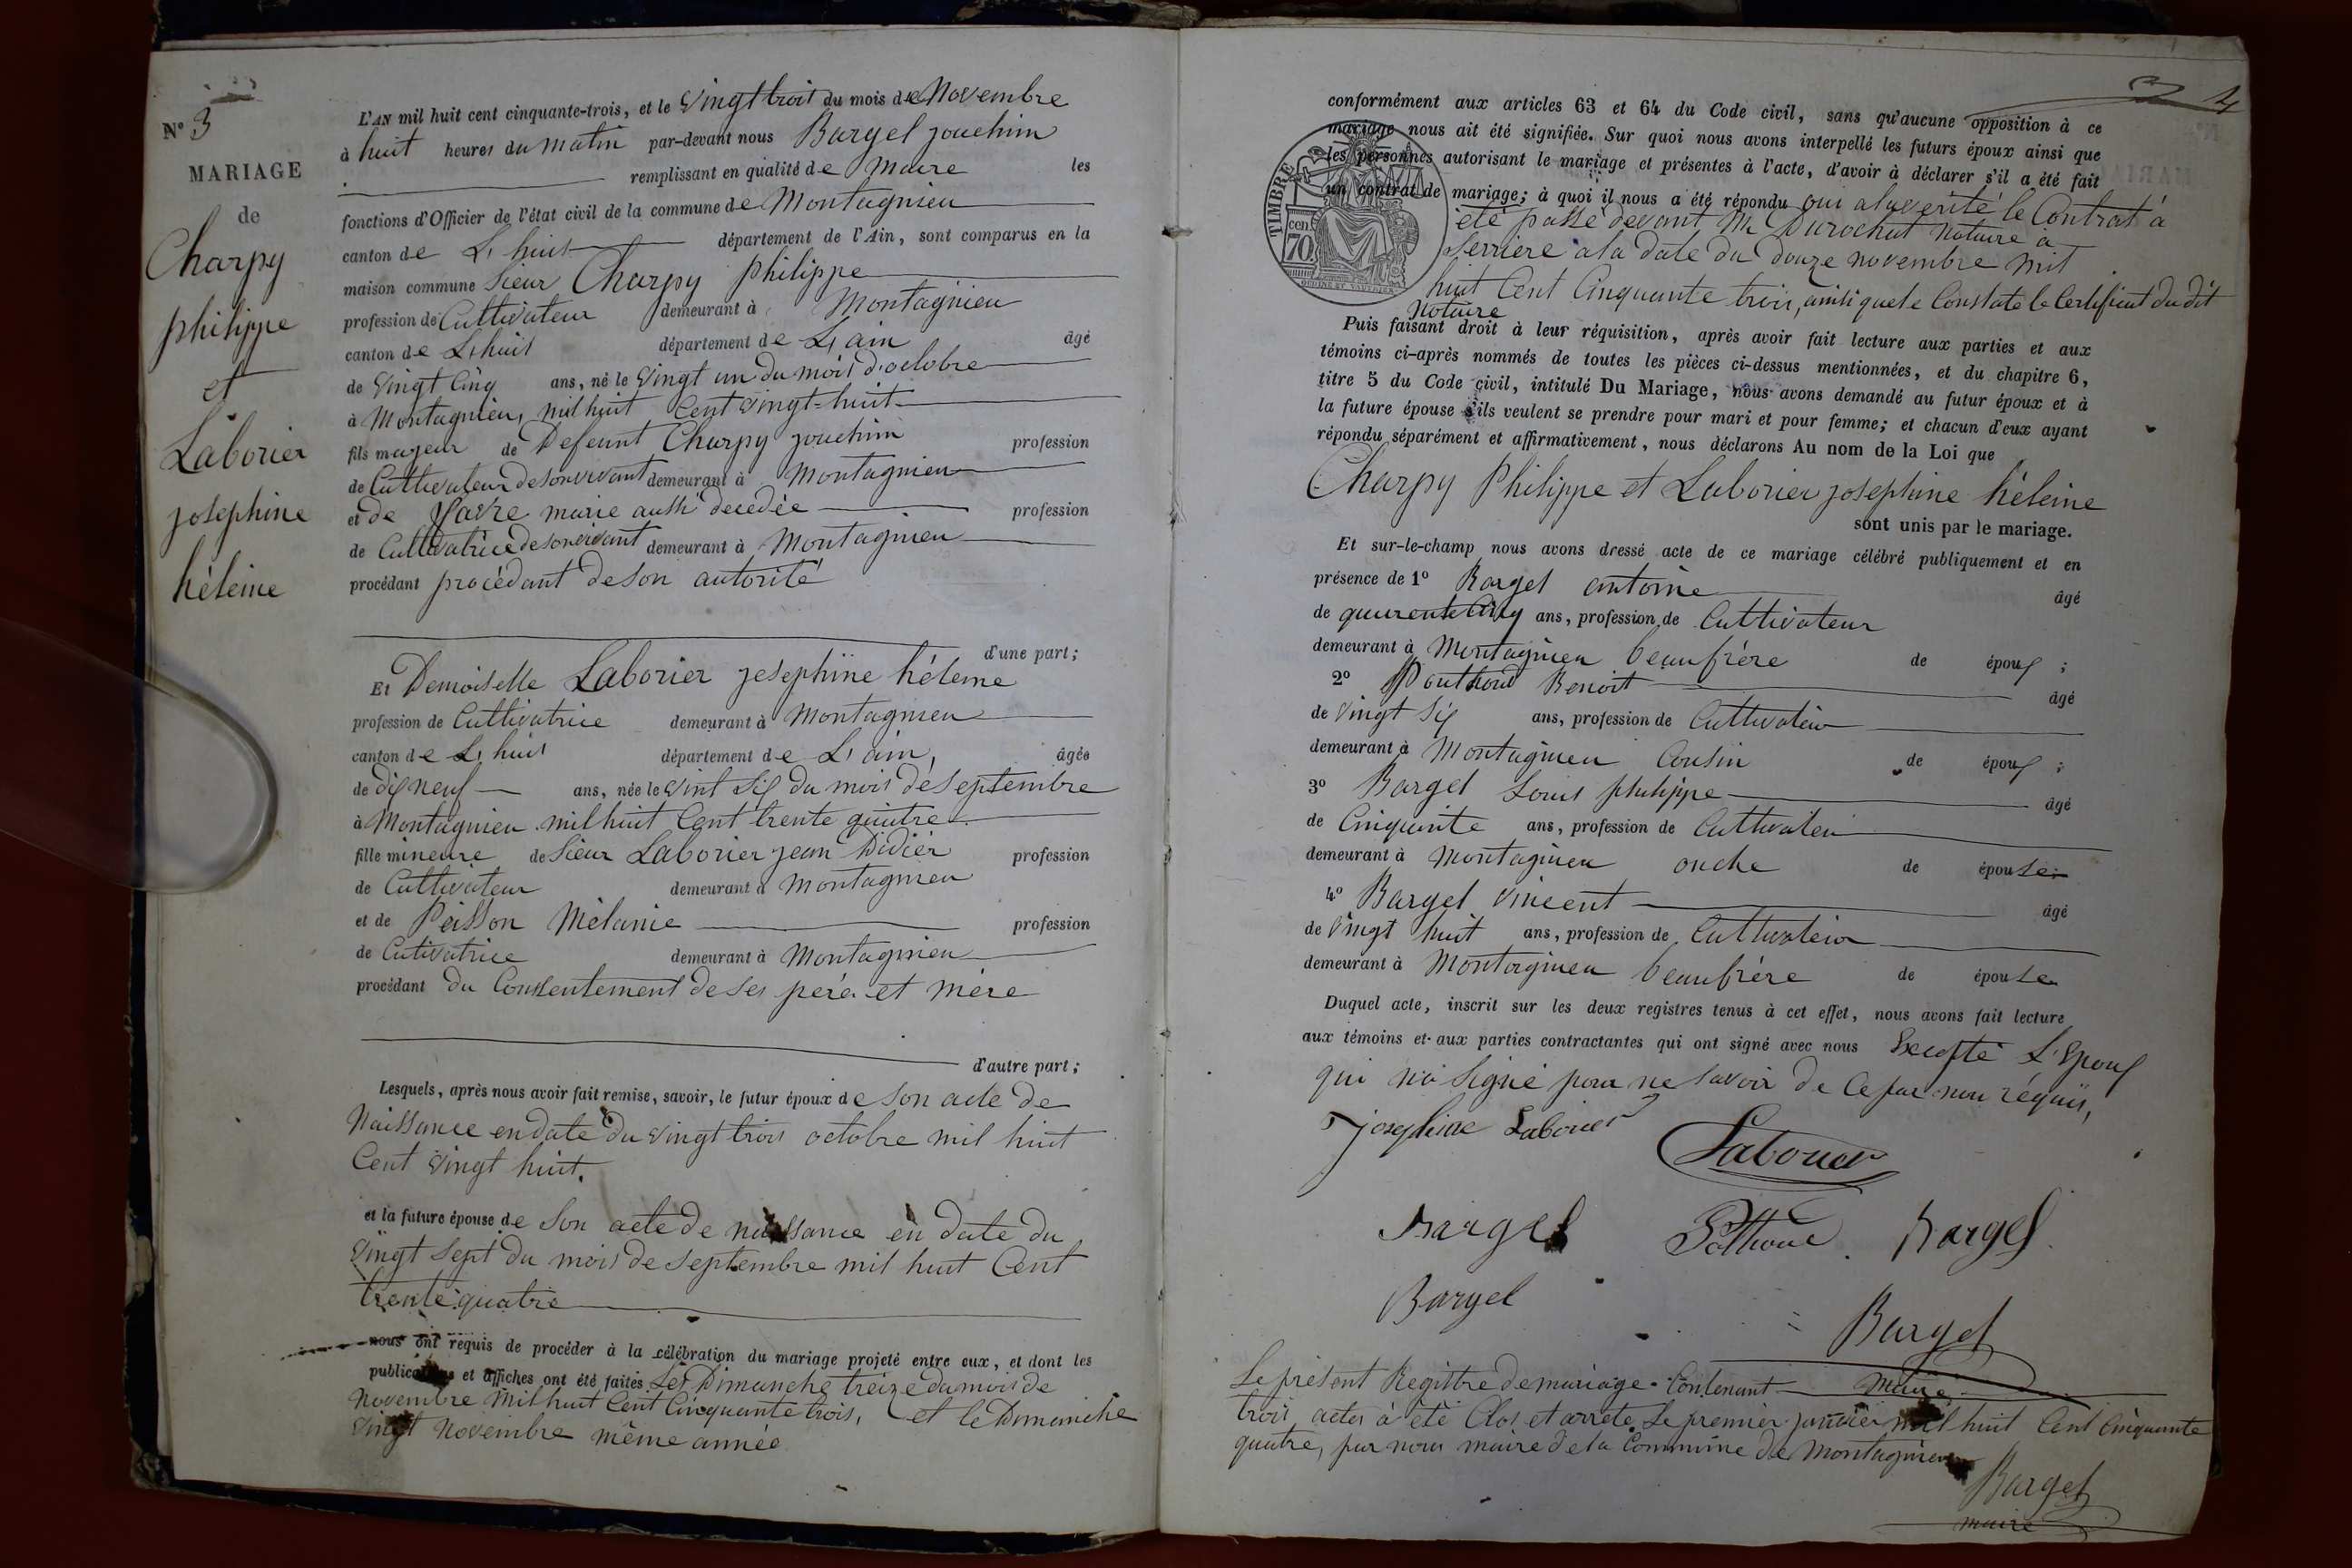 N° 3
MARIAGE
de
Charpy
philippe
et
Laborier
josephine
héleine
L'AN mil huit cent cinquante-trois, et le Vingt trois du mois de Novembre
à huit heures du matin par-devant nous Bargel jouchim
remplissant en qualité de maire les
fonctions d'Officier de l'état civil de la commune de Montagnieu
canton de L'huis département de l'Ain, sont comparus en la
maison commune Sieur Charpy philippe
profession de Cultivateur demeurant à Montagnieu
canton de L'huis département de L'ain âgé
de Vingt Cinq ans, né le Vingt un du mois d'octobre
à Montagnieu, mil huit Cent vingt-huit
fils majeur de Defeunt Charpy jouchim profession
de Cultivateur de son vivant demeurant à Montagnieu
et de favre marie aussi décédée profession
de Cultivatrice de son vivant demeurant à Montagnieu
procédant procédant de son autorité
d'une part;
Et Demoiselle Laborier josephine héleine
profession de Cultivatrice demeurant à Montagnieu
canton de L'huis département de L'ain, âgée
de dix neuf ans, née le vint six du mois de septembre
à Montagnieu mil huit Cent trente quatre
fille mineure de Sieur Laborier jean Didier profession
de Cultivateur demeurant à Montagnieu
et de Peisson Mélanie profession
de Cutivatrice demeurant à Montagnieu
procédant du Consentement de ses père et mère
d'autre part;
Lesquels, après nous avoir fait remise, savoir, le futur époux de son acte de
Naissance en date du vingt trois octobre mil huit
Cent vingt huit.
et la future épouse de son acte de naissance en date du
vingt sept du mois de septembre mil huit Cent
trente quatre
nous ont requis de procéder à la célébration du mariage projeté entre eux, et dont les
publications et affiches ont été faites Les Dimanche treize du mois de
Novembre mil huit Cent Cinquante trois, et le Dimanche
vingt Novembre même année
4
conformément aux articles 63 et 64 du Code civil, sans qu'aucune opposition à ce
mariage nous ait été signifiée. Sur quoi nous avons interpellé les futurs époux ainsi que
les personnes autorisant le mariage et présentes à l'acte, d'avoir à déclarer s'il a été fait
un contrat de mariage; à quoi il nous a été répondu qui a la verité le Contrat à
été passé devant Me Durochat Notaire à
Serriere a la date du douze novembre mil
huit Cent Cinquante trois, ainsi que le Constate le Certificat du dit
Notaire
TIMBRE
cen.
70
Puis faisant droit à leur réquisition, après avoir fait lecture aux parties et aux
témoins ci-après nommés de toutes les pièces ci-dessus mentionnées, et du chapitre 6,
titre 5 du Code civil, intitulé Du Mariage, nous avons demandé au futur époux et à
la future épouse s'ils veulent se prendre pour mari et pour femme; et chacun d'eux ayant
répondu séparément et affirmativement, nous déclarons Au nom de la Loi que
Charpy Philippe et Laborier josephine héleine
sont unis par le mariage.
Et sur-le-champ nous avons dressé acte de ce mariage célébré publiquement et en
présence de 1° Bargel antoine âgé
de quarente Cinq ans, profession de Cultivateur
demeurant à Montagnieu beaufrére de époux ;
2° Pouthoud Benoit âgé
de vingt six ans, profession de Cultivateur
demeurant à Montagnieu Cousin de époux ;
3° Bargel Louis philippe âgé
de Cinquante ans, profession de Cultivateur
demeurant à Montagnieu onche de épouse;
4° Bargel vincent âgé
de vingt huit ans, profession de Cultivateur
demeurant à Montagnieu beaufrére de épouse
Duquel acte, inscrit sur les deux registres tenus à cet effet, nous avons fait lecture
aux témoins et aux parties contractantes qui ont signé avec nous Excepté L'Epoux
qui n'a signé pour ne savoir de ce par nou réquis,
josephine Laborier
Laborier
Bargel Pothoud Bargel
Bargel
Bargel
maire
Le présent Registre de mariage Contenant
trois actes à été Clos et arrete Le premier janvier mil huit Cent Cinquante
quatre, par nous maire de la Commune de Montagnieu
Bargel
maire